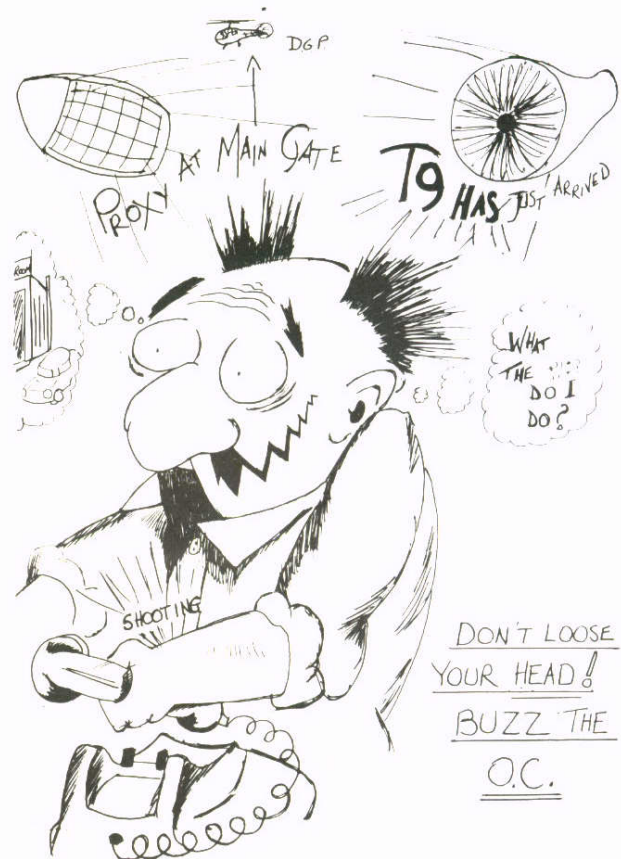 D.G.P.
PROXY AT MAIN GATE
T9 HAS JUST ARRIVED
ROOM
WHAT
THE
DO I
DO?
SHOOTING
DON'T LOOSE
YOUR HEAD!
BUZZ THE
O.C.